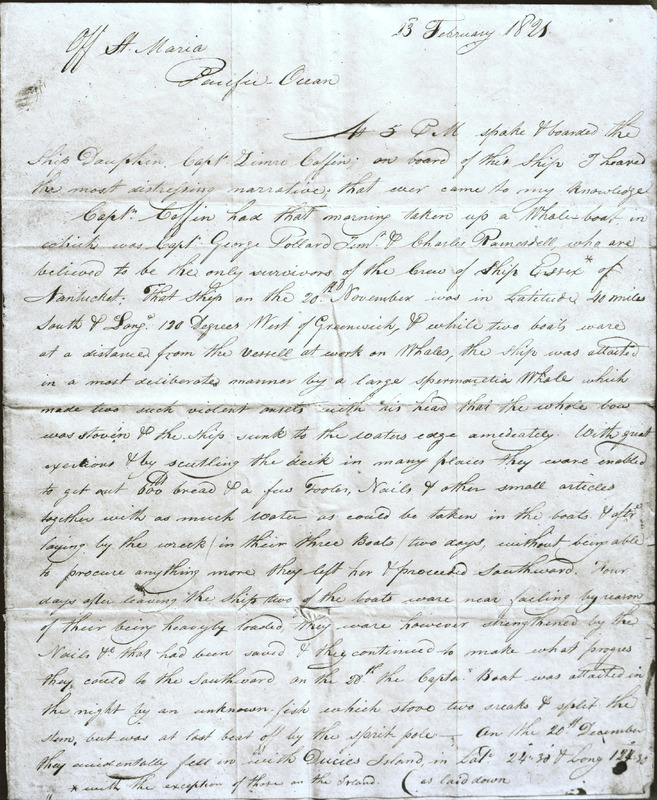 23 February 1821
Off St. Maria
Pacific Ocean
At 5 P M spoke & boarded the
Ship Dauphin, Capt. Zimri Coffin; on board of this Ship I heared
the most distressing narrative, that ever came to my knowledge
Captn. Coffin had that morning taken up a Whale boat in
which was Capt. George Pollard Junr. & Charles Ramsdell, who are
believed to be the only survivors of the Crew of Ship Essex * of
Nantucket. That Ship on the 20th November was in Latitude 40 miles
South & Long. 120 Degrees West of Greenwich, & while two boats ware
at a distance from the Vessell at work on Whales, the Ship was attacted
in a most deliberate manner by a large spermacetia Whale which
made two such violent onsets with his head that the whole bow
was stovin & the Ship sunk to the waters edge amediately. With great
exertions & by scuttling the deck in many places they ware enabled
to get out 600lb bread & a few Tooles, Nails & other small articles
together with as much Water as could be taken in the boats & after
laying by the wreck (in their three Boats) two days, without been able
to procure anything more they left her & proceeded Southward. Four
days after leaving the ship two of the boats ware near failing by reason
of their been heavyly loaded, they ware however strengthened by the
Nails &c that had been saved & they continued to make what progres
they could to the Southward on the 28th the Captns. Boat was attacted in
the night by an unknown fish which stove two sreaks & split the
stem, but was at last beat off by the sprit pole — On the 20th December
they accidentally fell in with Ducies Island, in Lat. 24-30 & Long 124-30
* with the exception of those on the Island. (as laid down